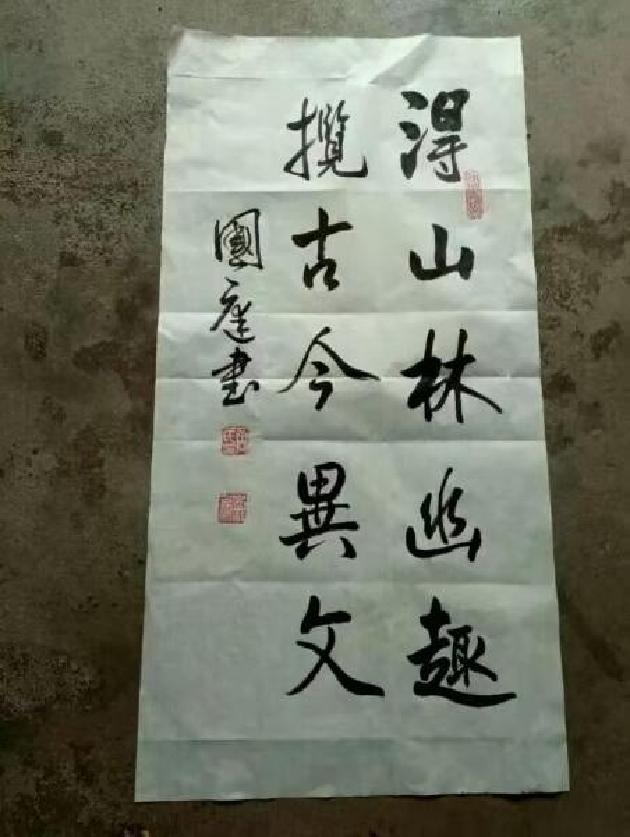 得山林幽趣
攬古今異文
國庭書